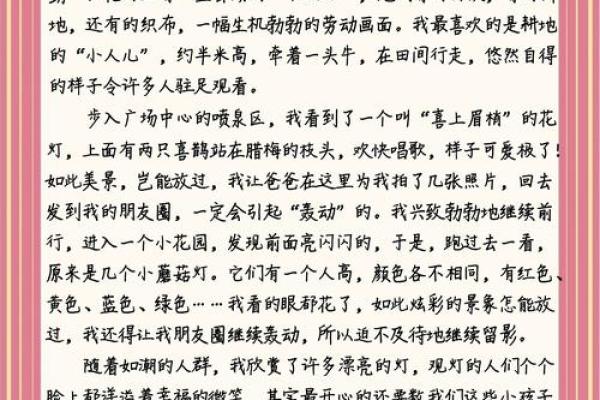 地，还有的织布，一幅生机勃勃的劳动画面。我最喜欢的是耕地
的“小人儿”，约半米高，牵着一头牛，在田间行走，悠然自得
的样子令许多人驻足观看。
步入广场中心的喷泉区，我看到了一个叫“喜上眉梢”的花
灯，上面有两只喜鹊站在腊梅的枝头，欢快唱歌，样子可爱极了！
如此美景，岂能放过，我让爸爸在这里为我拍了几张照片，回去
发到我的朋友圈，一定会引起“轰动”的。我兴致勃勃地继续前
行，进入一个小花园，发现前面亮闪闪的，于是，跑过去一看，
原来是几个小蘑菇灯。它们有一个人高，颜色各不相同，有红色、
黄色、蓝色、绿色……我看的眼都花了，如此炫彩的景象怎能放
过，我还得让我朋友圈继续轰动，所以迫不及待地继续留影。
随着如潮的人群，我欣赏了许多漂亮的灯，观灯的人们个个
脸上都洋溢着幸福的微笑。其实最开心的还要数我们这些小孩子